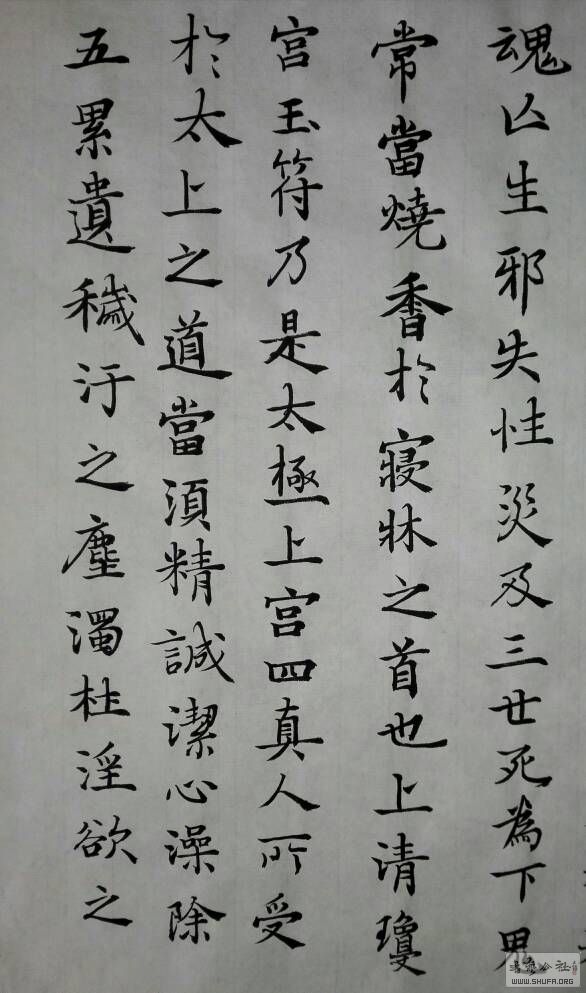 魂亾生邪失性災及三世死為下鬼
常當燒香於寢牀之首也上清瓊
宮玉符乃是太極上宮四真人所受
於太上之道當須精誠潔心澡除
五累遺穢汙之塵濁杜淫欲之
WWW.SHUFA.ORG